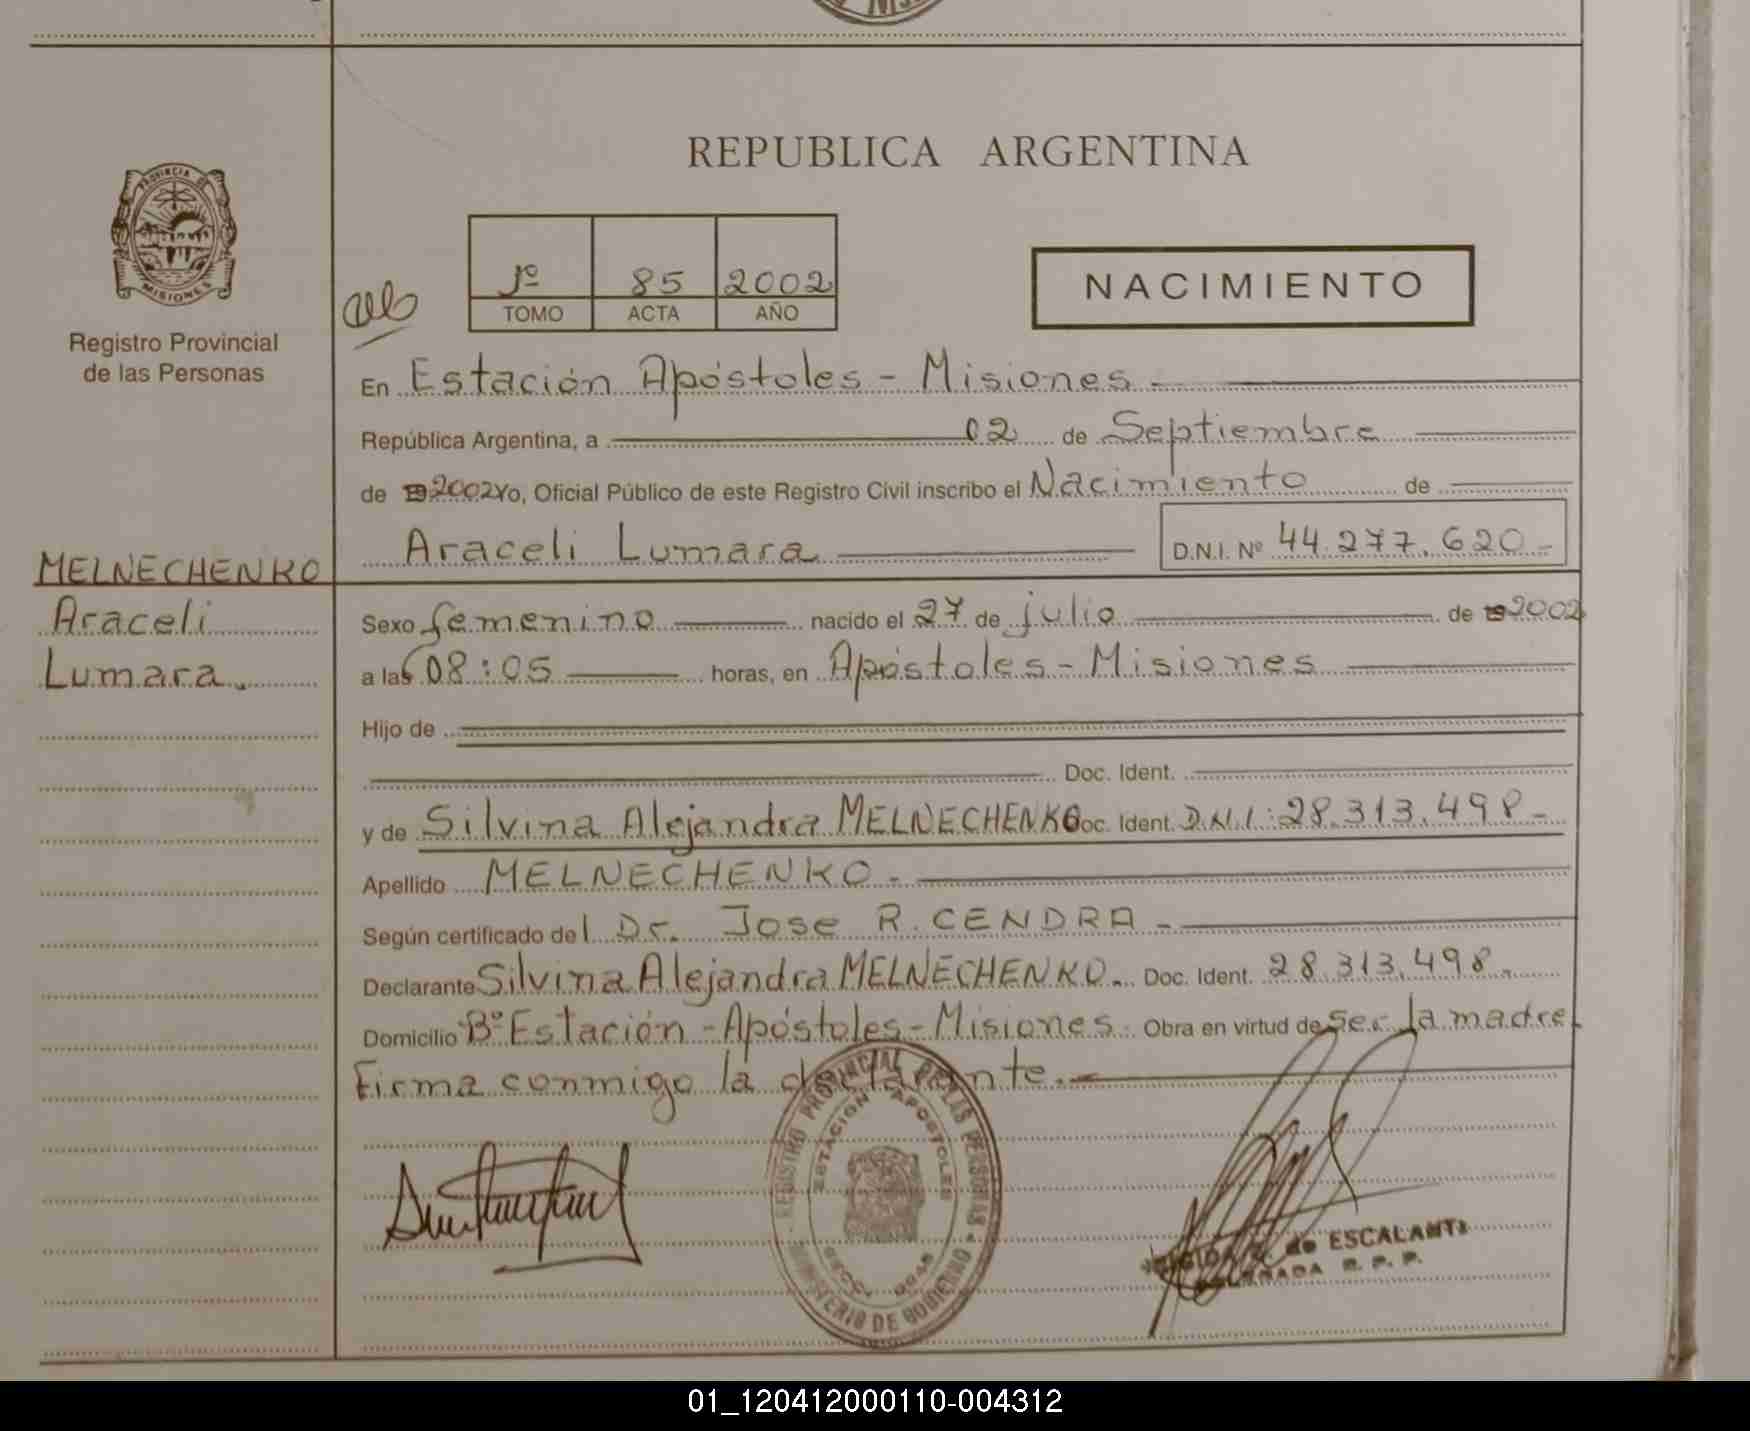 PROVINCIA DE
MISIONES
Registro Provincial
de las Personas
MELNECHENKO
Araceli
Lumara.
REPUBLICA ARGENTINA
1º 85 2002
TOMO ACTA AÑO
NACIMIENTO
En Estación Apóstoles - Misiones
República Argentina, a 02 de Septiembre
de 2002 Yo, Oficial Público de este Registro Civil inscribo el Nacimiento de
Araceli Lumara D.N.I. Nº 44.277.620-
Sexo femenino nacido el 27 de julio de 2002
a las 08:05 horas, en Apóstoles - Misiones
Hijo de
Doc. Ident.
y de Silvina Alejandra MELNECHENKO Doc. Ident. D.N.I: 28.313.498-
Apellido MELNECHENKO-
Según certificado del Dr. Jose R. CENDRA-
Declarante Silvina Alejandra MELNECHENKO. Doc. Ident. 28.313.498.
Domicilio Bº Estación - Apóstoles - Misiones Obra en virtud de ser la madre
Firma conmigo la declarante.
REGISTRO PROVINCIAL DE LAS PERSONAS
ESTACION APOSTOLES
MINISTERIO DE GOBIERNO
de ESCALANTE
DELEGADA R. P. P.
01_120412000110-004312